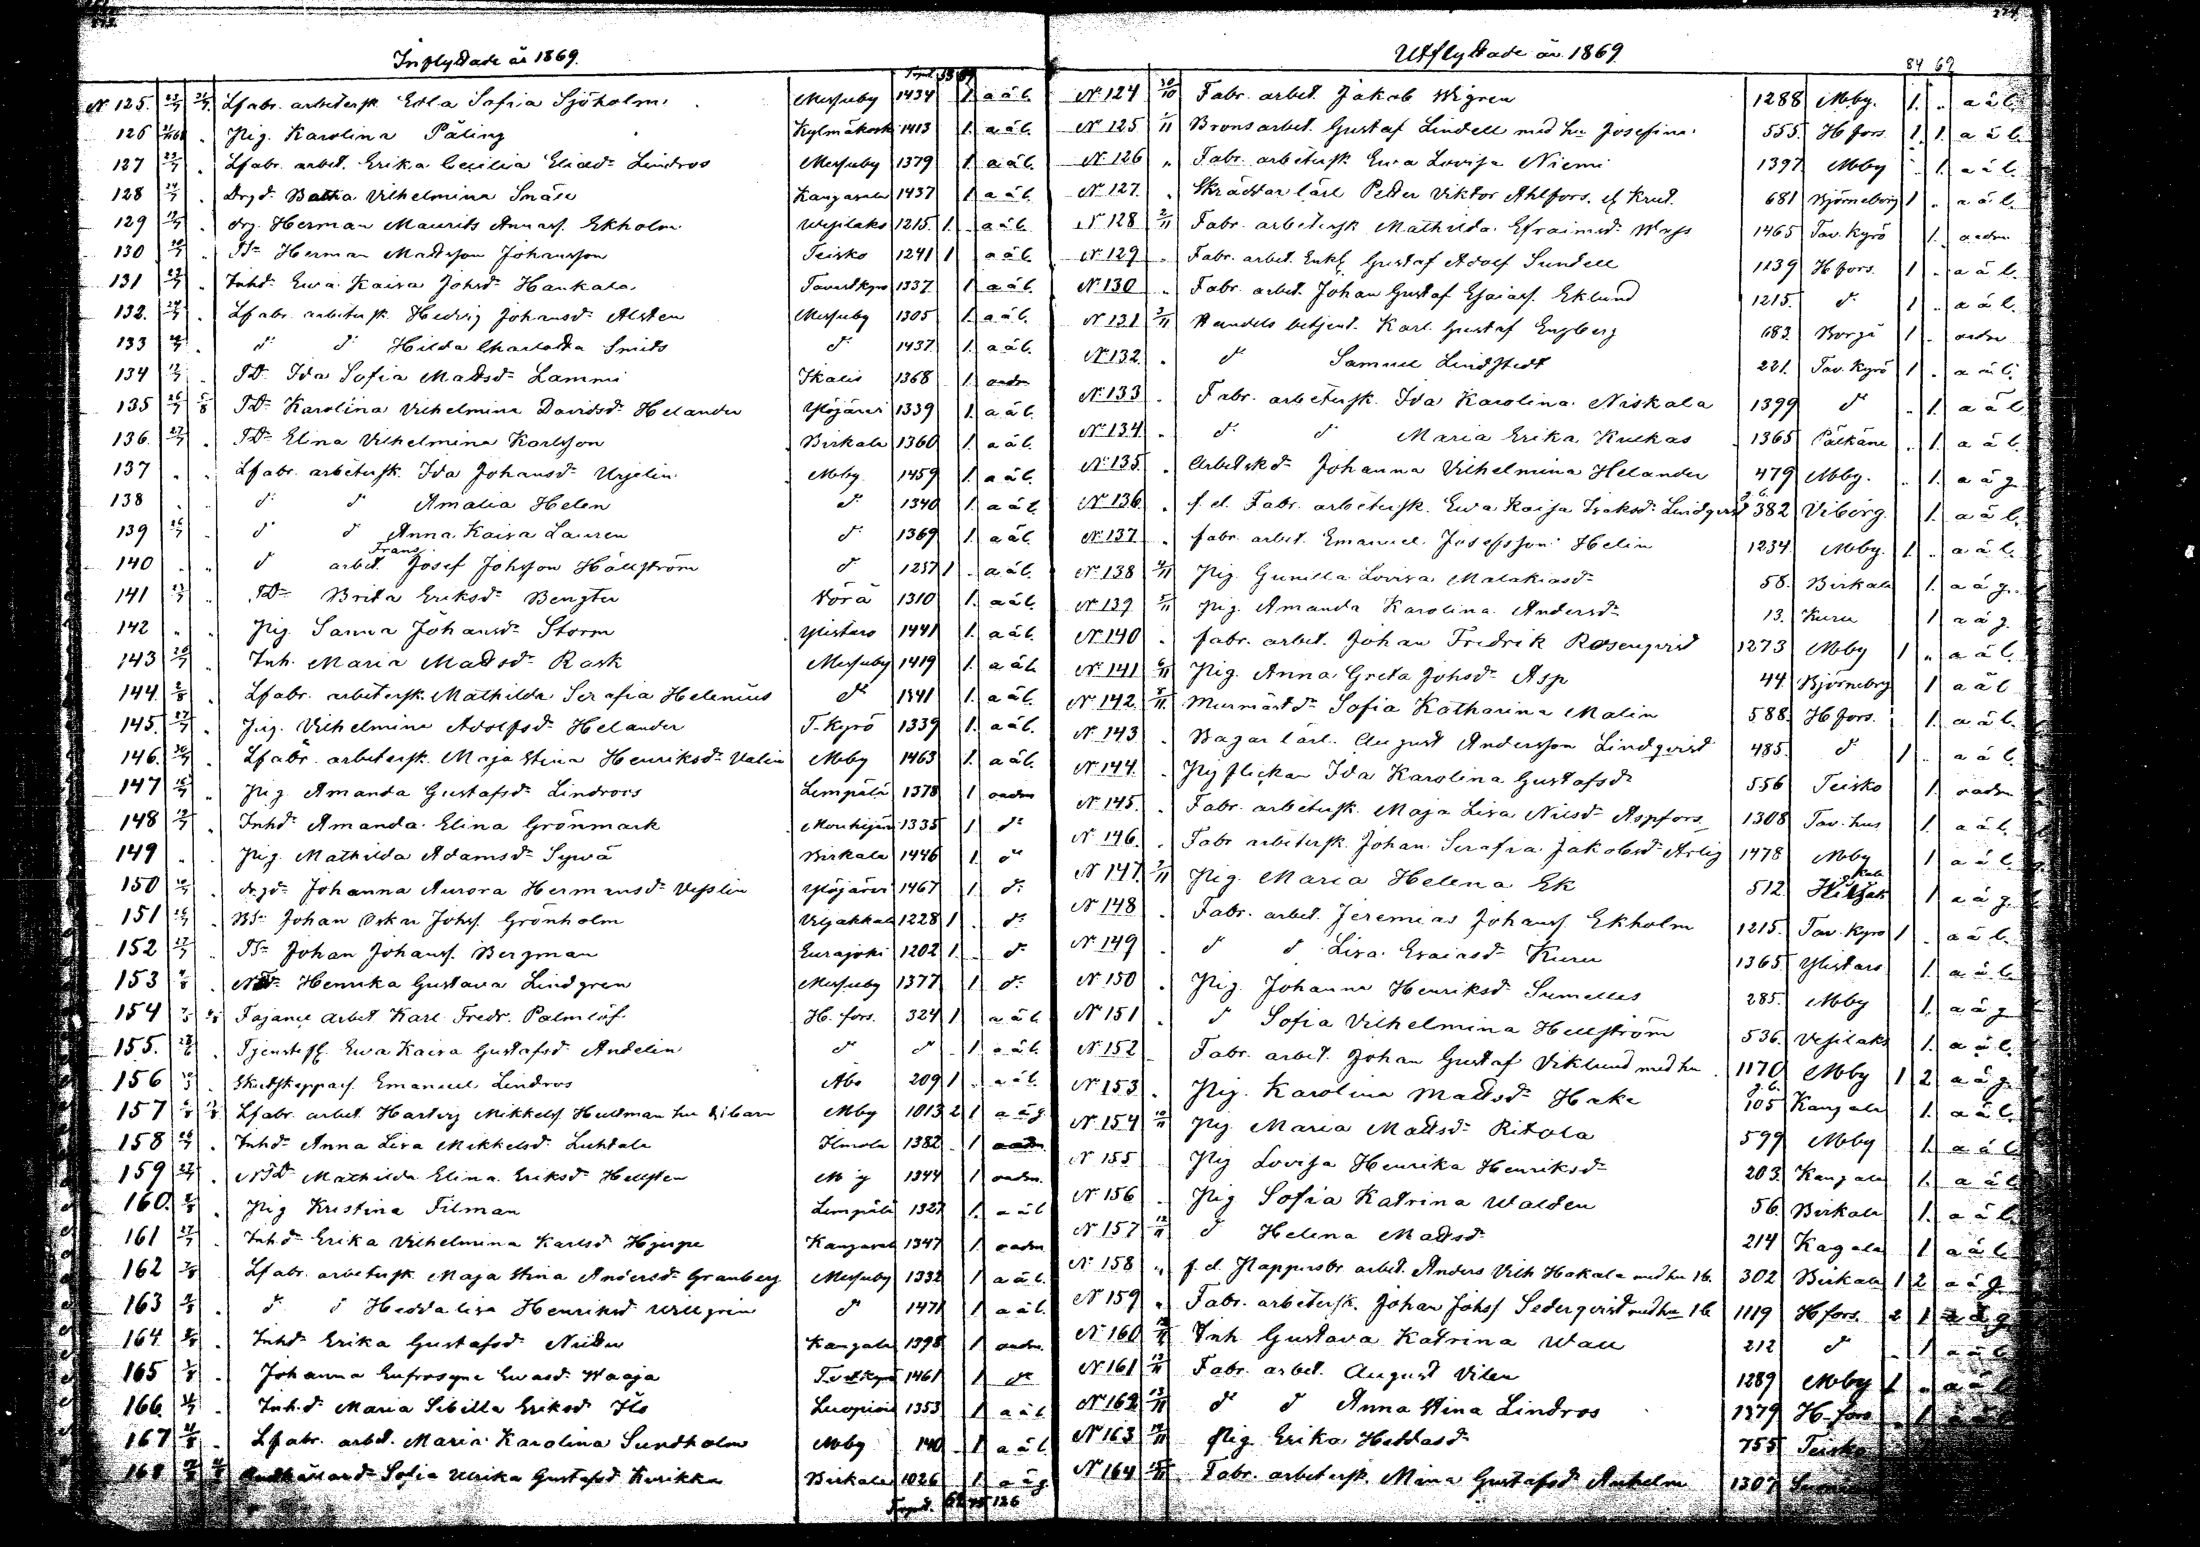 Inflyttade år 1869.
N 125. 23/7 31/7. Lfabr. arbetersk Edla Sofia Sjöholm. Messuby 1434 1. a ä l.
126 Pig. Karolina Påling Kylmäkoski 1413 1. a ä l.
127 Lfabr. arbet. Erika Cecilia Eliad:r Lindros Messuby 1379 1. a ä l.
128 Drgd: Vilhelmina Kangasala 1437 1 a ä l.
129 drg. Herman Maurits Ekholm Vesilaks 1215. 1. a ä l.
130 Herman Mattsson Johansson Teisko 1241 1 a ä l.
131 Inhd: Ewa Kaisa Johsd: Hankala. Tavastkyro 1337. 1 a ä l.
132. Lfabr. arbetersk. Hedvig Johansd: Alsten Messuby 1305 1. a ä l.
133 d: d: Hilda Charlotta Smids d: 1437. 1. a ä l.
134 TD: Ida Sofia Mattsd: Lammi Ikalis 1368 1.
135 TD: Karolina Vilhelmina Davidsd: Helander Ylöjärvi 1339 1. a ä l.
136. TD: Elina Vilhelmina Karlsson Birkala 1360 1. a ä l.
137 Lfabr. arbetersk. Ida Johansd: Urjelin Moby 1459 1. a ä l.
138 d: d Amalia Helen d: 1340 1. a ä l.
139 d d Anna Kaisa Lauren d: 1369 1. a ä l.
140 d arbet. Frans Josef Johsson Hällström d 1257 1 a ä l.
141 TD: Brita Eriksd: Bengter Vörå 1310 1. a ä l.
142 Pig. Sanna Johansd: Storm Ylistaro 1441 1. a ä l.
143 Inh. Maria Mattsd: Rask Messuby 1419 1. a ä l.
144. Lfabr. arbetersk. Mathilda Serafia Helenius d: 1341 1. a ä l.
145. Pig. Vilhelmina Adolfsd: Helander T-Kyrö 1339 1. a ä l.
146. Lfabr. arbetersk. Maja Stina Henriksd: Valin Moby 1463 1. a ä l.
147 Pig Amanda Gustafsd: Lindroos Lempälä 1378 1
148 Inhd: Amanda Elina Grönmark Mouhijärvi 1335 1 d:
149 Pig. Mathilda Adamsd: Sywä Birkala 1446 1. d:
150 drgd: Johanna Aurora Hermansd: Ylöjärvi 1467 1. d:
151 Johan Oskar Johss. Grönholm Viljakkala 1228 1 d:
152 Johan Johanss. Bergman Eurajoki 1202 1. d:
153 Henrika Gustava Lindgren Messuby 1377 1 d:
154 Fajance arbet Karl Fredr. Palmlöf. H. fors. 324 1 a ä l.
155. Ewa Kaisa Gustafsd: Andelin d d 1 a ä l.
156 Emanuel Lindros Åbo 209 1 a ä l.
157 Lfabr. arbet. Hartvig Mikkelss Hultman hu & 1 barn Moby 1013 2 1 a ä g.
158 Inhd: Anna Lisa Mikkelsd: Luhtala Ilmola 1382 1
159 NTD: Mathilda Elina Eriksd: Hellsten M y 1344 1
160. Pig Kristina Filman Lempälä 1327 1. a ä l
161 Inhd: Erika Vilhelmina Karlsd: Hjerpe Kangasal 1347 1.
162 Lfabr. arbetersk Maja Stina Andersd: Granberg Messuby 1332 1 a ä l.
163 d: d Hedda Lisa Henriksd: d 1471 1 a ä l.
164 Inhd: Erika Gustafsd: Kangala 1398 1
165 Johanna Eufrosyne Ewasd: Waaja 1461 1 d:
166. Inh.d: Maria Sibilla Eriksd: 1353 1 a ä l
167 Lfabr. arbet. Maria Karolina Sundholm Moby 140 1 a ä l
168 Sofia Ulrika Gustafsd: Kurikka Birkala 1026 1. a ä g.
Transp. 126
Utflyttade år 1869
84 69
No 124 30/10 Fabr. arbet. Jakob Wigren 1288 Moby. 1. a ä l.
No 125 1/11 Bronsarbet. Gustaf Lindell med hu Josefina. 555. H fors. 1. 1. a ä l.
No 126 Fabr. arbetersk. Ewa Lovisa Niemi 1397 Moby 1. a ä l.
No 127. Skräddar lärl Petter Viktor Ahlfors 681 Björneborg 1 a ä l.
No 128 2/11 Fabr. arbetersk Mathilda Efraimsd: 1465 Tav. Kyrö 1.
No 129 Fabr. arbet. Enkl. Gustaf Adolf Sundell 1139 H fors. 1 a ä l.
No 130 Fabr. arbet. Johan Gustaf Esaiass. Eklund 1215. d: 1 a ä l.
No 131 3/11 Handels betjent. Karl Gustaf Engberg 683. Borgå 1
No 132. d: Samuel Lindstedt 221. Tav. Kyrö 1 a ä l.
No 133 Fabr. arbetersk. Ida Karolina Niskala 1399 d: 1. a ä l
No 134 d: d Maria Erika Kulkas 1365 Pälkäne 1. a ä l.
No 135. Arbetskd: Johanna Vilhelmina Helander 479 Moby. 1. a ä g.
No 136. f. d. Fabr. arbetersk. Ewa Kaisa Isaksd: Lindqvist 382 Viborg. 1. a ä l.
No 137 fabr. arbet. Emanuel Josefsson Helin 1234. Moby. 1. a ä l.
No 138 Pig Gunilla Lovisa Malakiasd: 58. Birkala 1. a ä g.
No 139 Pig. Amanda Karolina Andersd: 13. Kuru 1 a ä g
No 140 fabr. arbet. Johan Fredrik Rosenqvist 1273 Moby 1 a ä l.
No 141 Pig. Anna Greta Johsd: Asp 44 Björneborg 1 a ä l
No 142. Murmästd: Sofia Katharina Malin 588. H fors. 1. a ä l.
No 143 Bagar lärl. August Andersson Lindqvist 485. d 1 a ä l.
No 144. Pigflickan Ida Karolina Gustafsd: 556 Teisko 1.
No 145. Fabr. arbetersk. Maja Lisa Nilsd: Aspfors 1308 Tav. hus 1. a ä l.
No 146. Fabr arbetersk. Johan Serafia Jakobsd: Arlig 1478 Moby 1 a ä l.
No 147. Pig. Maria Helena Ek 512. 1 a ä g.
No 148 Fabr. arbet. Jeremias Johanss Ekholm 1215. Tav. Kyro 1 a ä l.
No 149 d d Lisa Esaiasd: Kuru 1365 Ylistaro 1. a ä l.
No 150 Pig. Johanna Henriksd: Sumelles 285. Moby 1. a ä g
No 151 d Sofia Vilhelmina Hellström 536. Vesilaks 1. a ä l.
No 152 Fabr. arbet. Johan Gustaf Viklund med hu 1170 Moby 1 2 a ä g.
No 153 Pig. Karolina Mattsd: Hake 105 Kangala 1. a ä l.
No 154 10/11 Pig Maria Mattsd: Ritola 599 Moby 1. a ä l
No 155 Pig Lovisa Henrika Henriksd: 203. Kangala 1. a ä l
No 156 Pig Sofia Katrina Walden 56. Birkala 1. a ä l.
No 157 12/11 d Helena Mattsd: 214 Kagala 1 a ä l
No 158 f. d. arbet. Anders Vilh Hakala med hu 1 b. 302 Birkala 1 2 a ä g
No 159 Fabr. arbetersk. Johan Johss Sederqvist med hu 1 b 1119 H fors. 2 1 a ä g
No 160 Inh Gustava Katrina Wall 212 d 1 a ä l
No 161 Fabr. arbet. August Vilen 1289 Moby 1 a ä l
No 162 d: d Anna Stina Lindros 1379 H-fors 1 a ä l
No 163 Pig. Erika Heddasd: 755 Teisko
No 164 Fabr. arbetersk. Mina Gustafsd: 1307